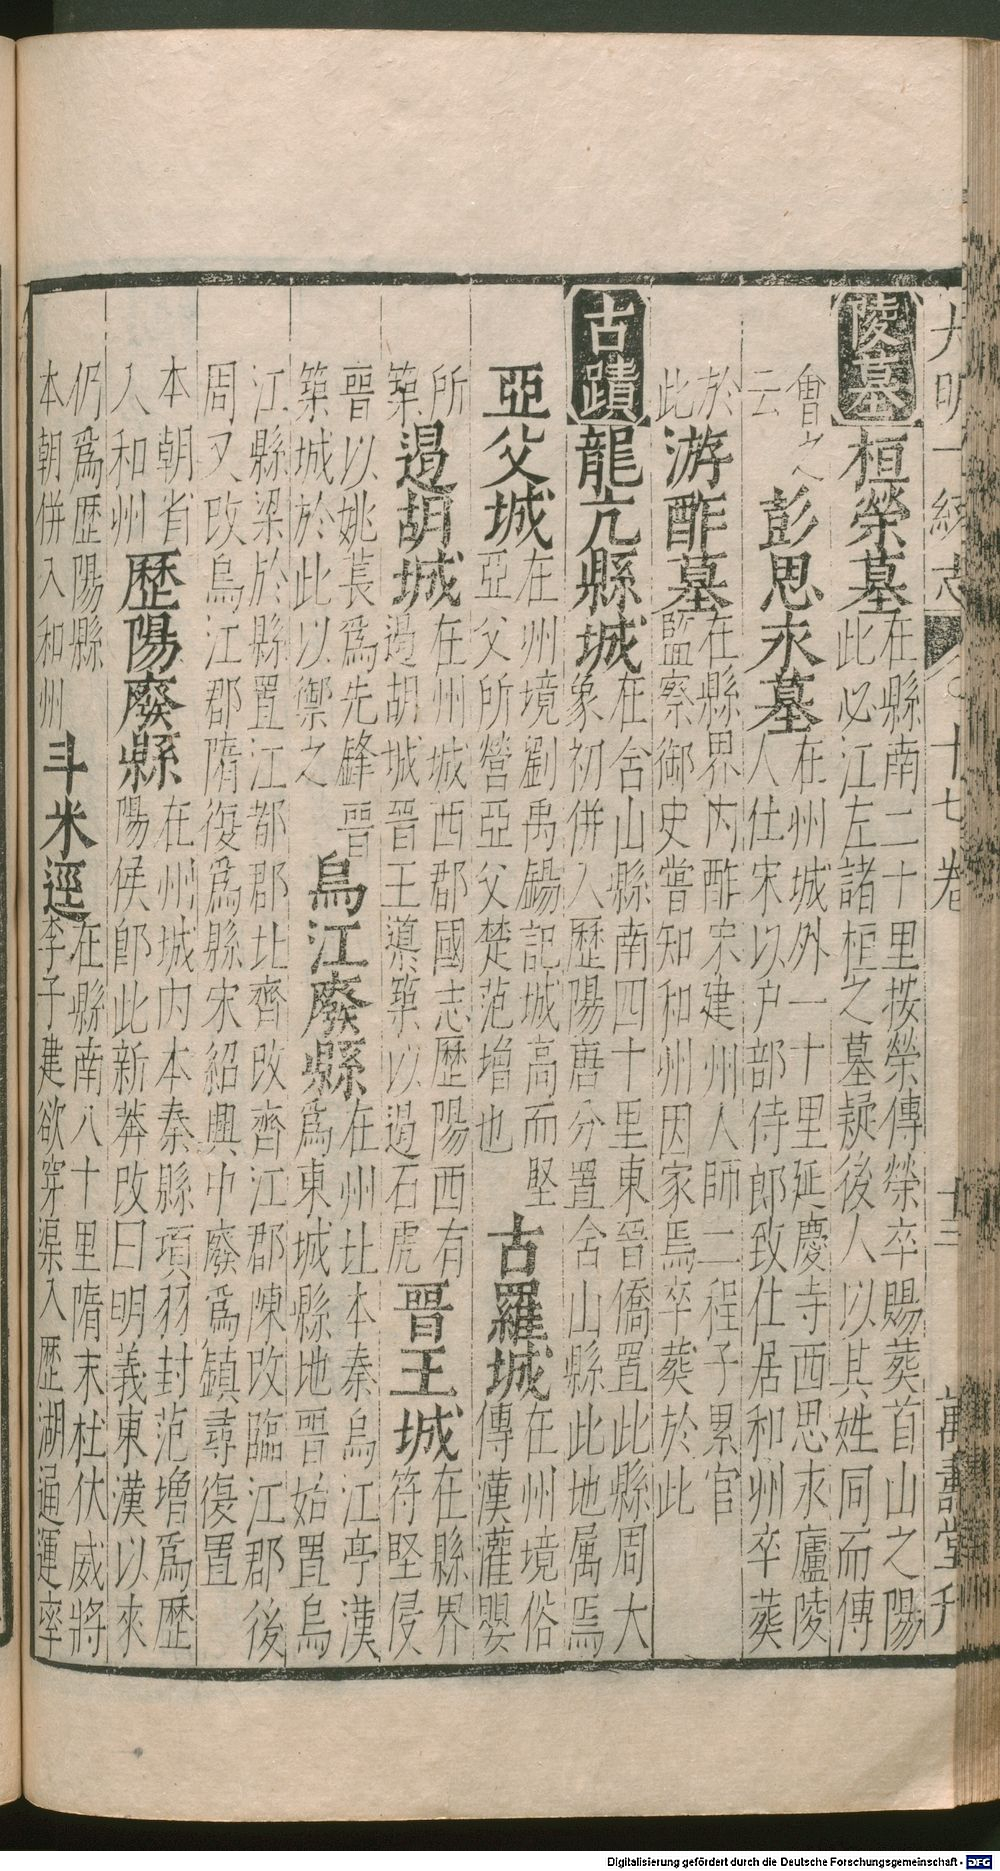 大明一統志 十七卷 十三 萬壽堂刋
陵墓 桓榮墓
在縣南二十里按榮傳榮卒賜葬首山之陽
此必江左諸桓之墓疑後人以其姓同而傳
㑹之
云
彭思永墓
在州城外一十里延慶寺西思永廬陵
人仕宋以户部侍郎致仕居和州卒葬
於
此
游酢墓
在縣界内酢宋建州人師二程子累官
監察御史嘗知和州因家焉卒葬於此
古蹟 龍亢縣城
在含山縣南四十里東晉僑置此縣周大
象初併入歷陽唐分置含山縣此地属焉
亞父城
在州境劉禹錫記城高而堅
亞父所營亞父楚范增也
古羅城
在州境俗
傳漢灌嬰
所
築
遏胡城
在州城西郡國志歷陽西有
遏胡城晉王導築以遏石虎
晉王城
在縣界
符堅侵
晉以姚萇爲先鋒晉
築城於此以禦之
烏江廢縣
在州北本秦烏江亭漢
爲東城縣地晉始置烏
江縣梁於縣置江都郡北齊改齊江郡陳改臨江郡後
周又改烏江郡隋復爲縣宋紹興中廢爲鎮尋復置
本朝省
入和州
歷陽廢縣
在州城内本秦縣項羽封范增爲歷
陽侯即此新莽改曰明義東漢以來
仍爲歷陽縣
本朝併入和州
斗米逕
在縣南八十里隋末杜伏威將
李子建欲穿渠入歷湖通運率
Digitalisierung gefördert durch die Deutsche Forschungsgemeinschaft - DFG